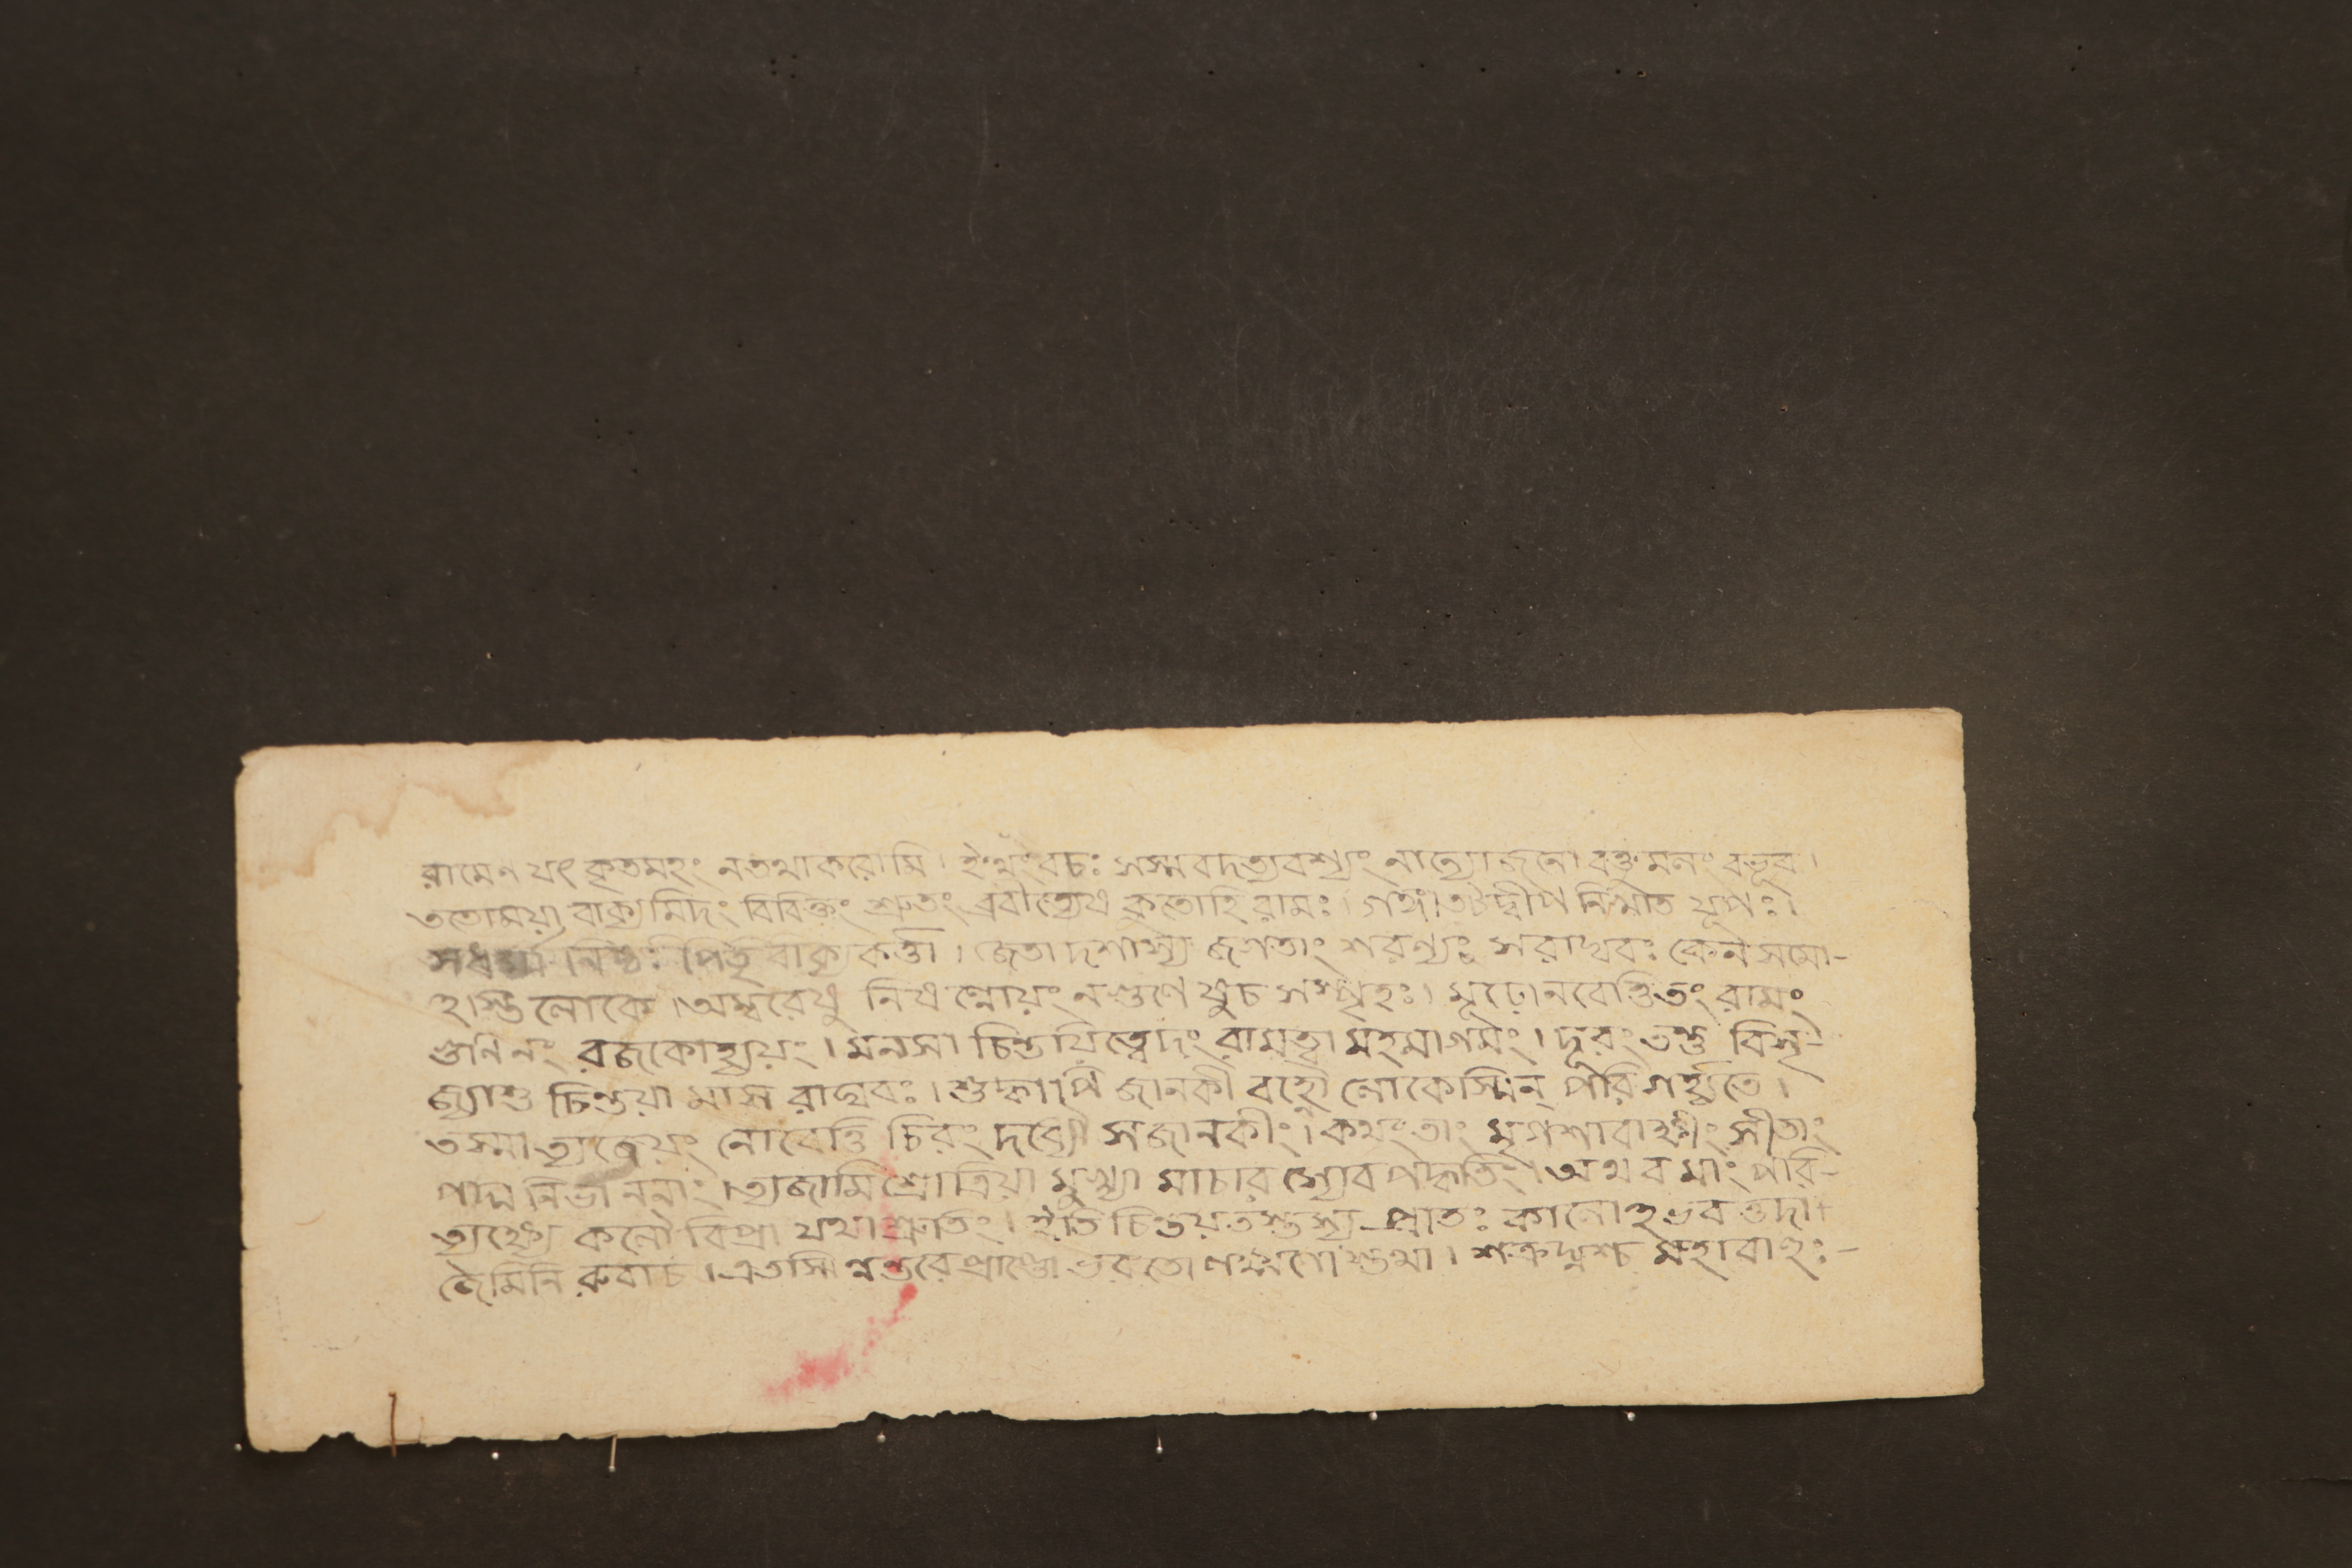 রামেণ যৎ কৃতমহং নতথাকরোমি। ইত্থং বচঃ সস্মবদত্যবশ্যং নান্যোজনো বক্তুমলং বভূব।
ততোময়া বাক্যমিদং বিবিক্তং শ্রুতং ব্রবীত্যেষ কুতোহি রামঃ। গঙ্গাতটদ্বীপ নিখাত যূপঃ।
সধর্ম্ম নিষ্ঠঃ পিতৃ বাক্য কর্ত্তা। জেতা দশাস্য জগতাং শরণ্যঃ সরাঘবঃ কেন সমো-
হস্তি লোকে। অম্বরেষু নিষণ্ণোয়ং নগুণেষুচ সস্পৃহঃ। মূঢ়োনবেত্তিতং রামং
গুণিনং রজকোহ্যয়ং। মনসা চিন্তয়িত্বেদং রামত্বা মহমাগমং। দূরং তন্তু বিসৃ-
জ্যাশু চিন্তয়া মাস রাঘবঃ। শুদ্ধাপি জানকী বহ্নৌ লোকেস্মিন্ পরিগর্হ্যতে।
তস্মাত্যজেয়ং নোবেত্তি চিরং দধ্যৌ সজানকীং। কথং তাং মৃগশাবাক্ষীং সীতাং
পদ্ম নিভাননাং। ত্যজামি শ্রোত্রিয়া মুখ্যা মাচারস্যেব পদ্ধতিং। অথবমাং পরি-
ত্যক্ষ্যে কলৌ বিপ্রা যথা শ্রুতিং। ইতি চিন্তয়তস্তস্য প্রাতঃ কালোহভবত্তদা।
জৈমিনি রুবাচ। এতস্মিন্নন্তরে প্রাপ্তো ভরতো লক্ষ্মণো স্তথা। শত্রুঘ্নশ্চ মহাবাহুঃ-